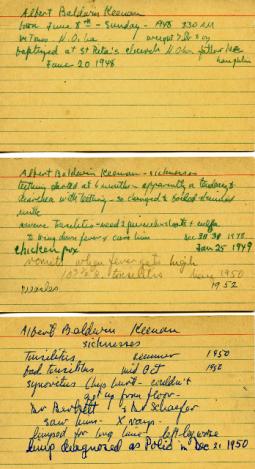 Albert Baldwin Keenan
born June 8th - Sunday - 1948 330 AM
N.O. La weight 7 lb 3 oz
baptized at St Rita's church N.O. La father
June 20 1948
Albert Baldwin Keenan - sicknesses
teething started at 6 months - apparently a tendency to
diarrhea with teething - so changed to boiled skimmed
milk
severe Tonsilitis - need 2 penicillin shots + sulfa
to bring down fever & cure him Dec 1948
Chicken pox Jan 25 1949
vomits when fever gets high
tonsilitis 1950
measles 1952
Albert Baldwin Keenan
sicknesses
Tonsilitis summer 1950
bad tonsilitis mid Oct 1950
synovitus (hips hurt - couldn't
get up from floor -
Dr Burdett & Dr Schaefer
saw him - X rays -
limped for long time - left leg worse
limp diagnosed as Polio in Dec 21 1950